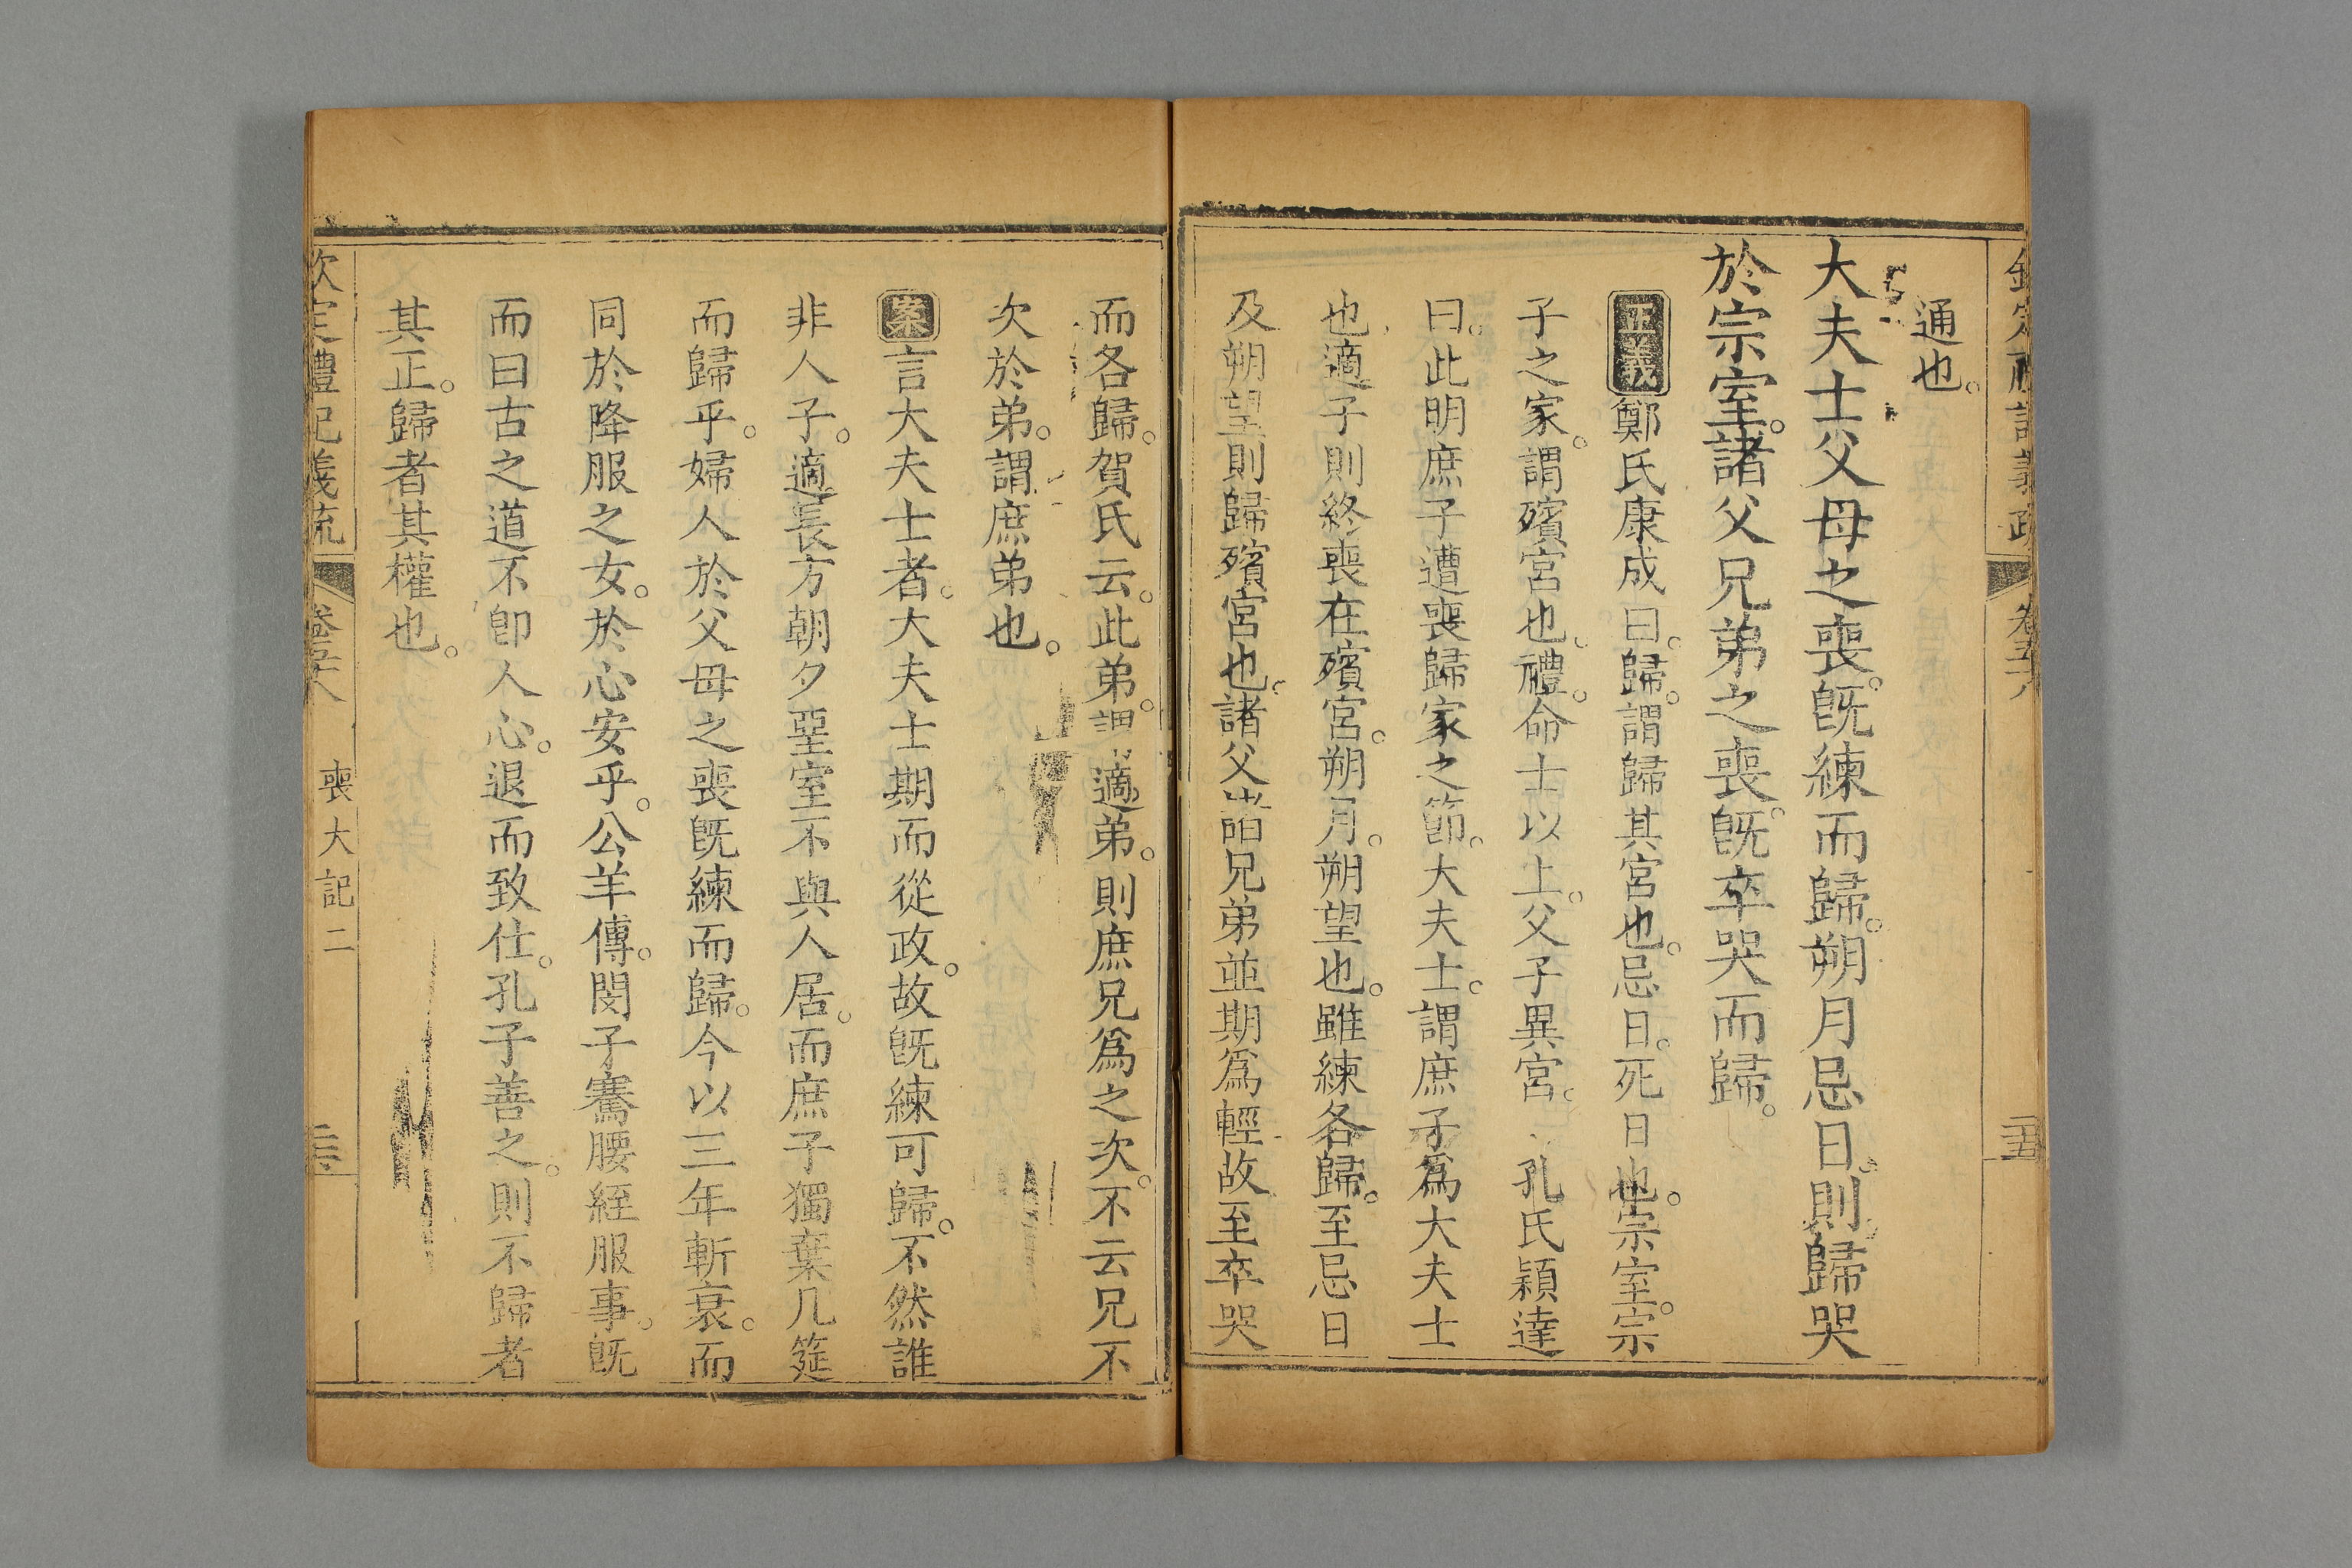 通也。
大夫士父母之喪。旣練而歸。朔月忌日。則歸哭
於宗室。諸父兄弟之喪。旣卒哭而歸。
正義鄭氏康成曰。歸。謂歸其宮也。忌日。死日也。宗室。宗
子之家。謂殯宮也。禮。命士以上。父子異宮。孔氏穎達
曰。此明庶子遭喪歸家之節。大夫士。謂庶子爲大夫士
也。適子則終喪在殯宮。朔月。朔望也。雖練各歸。至忌日
及朔望則歸殯宮也。諸父諸兄弟並期爲輕故至卒哭
而各歸。賀氏云。此弟。謂適弟。則庶兄爲之次。不云兄不
次於弟。謂庶弟也。
案言大夫士者。大夫士期而從政。故旣練可歸。不然誰
非人子。適長方朝夕堊室不與人居。而庶子獨棄几筵
而歸乎。婦人於父母之喪旣練而歸。今以三年斬衰。而
同於降服之女。於心安乎。公羊傳。閔子騫腰絰服事。旣
而曰古之道不卽人心。退而致仕。孔子善之。則不歸者
其正。歸者其權也。
欽定禮記義疏 卷五十八 喪大記二